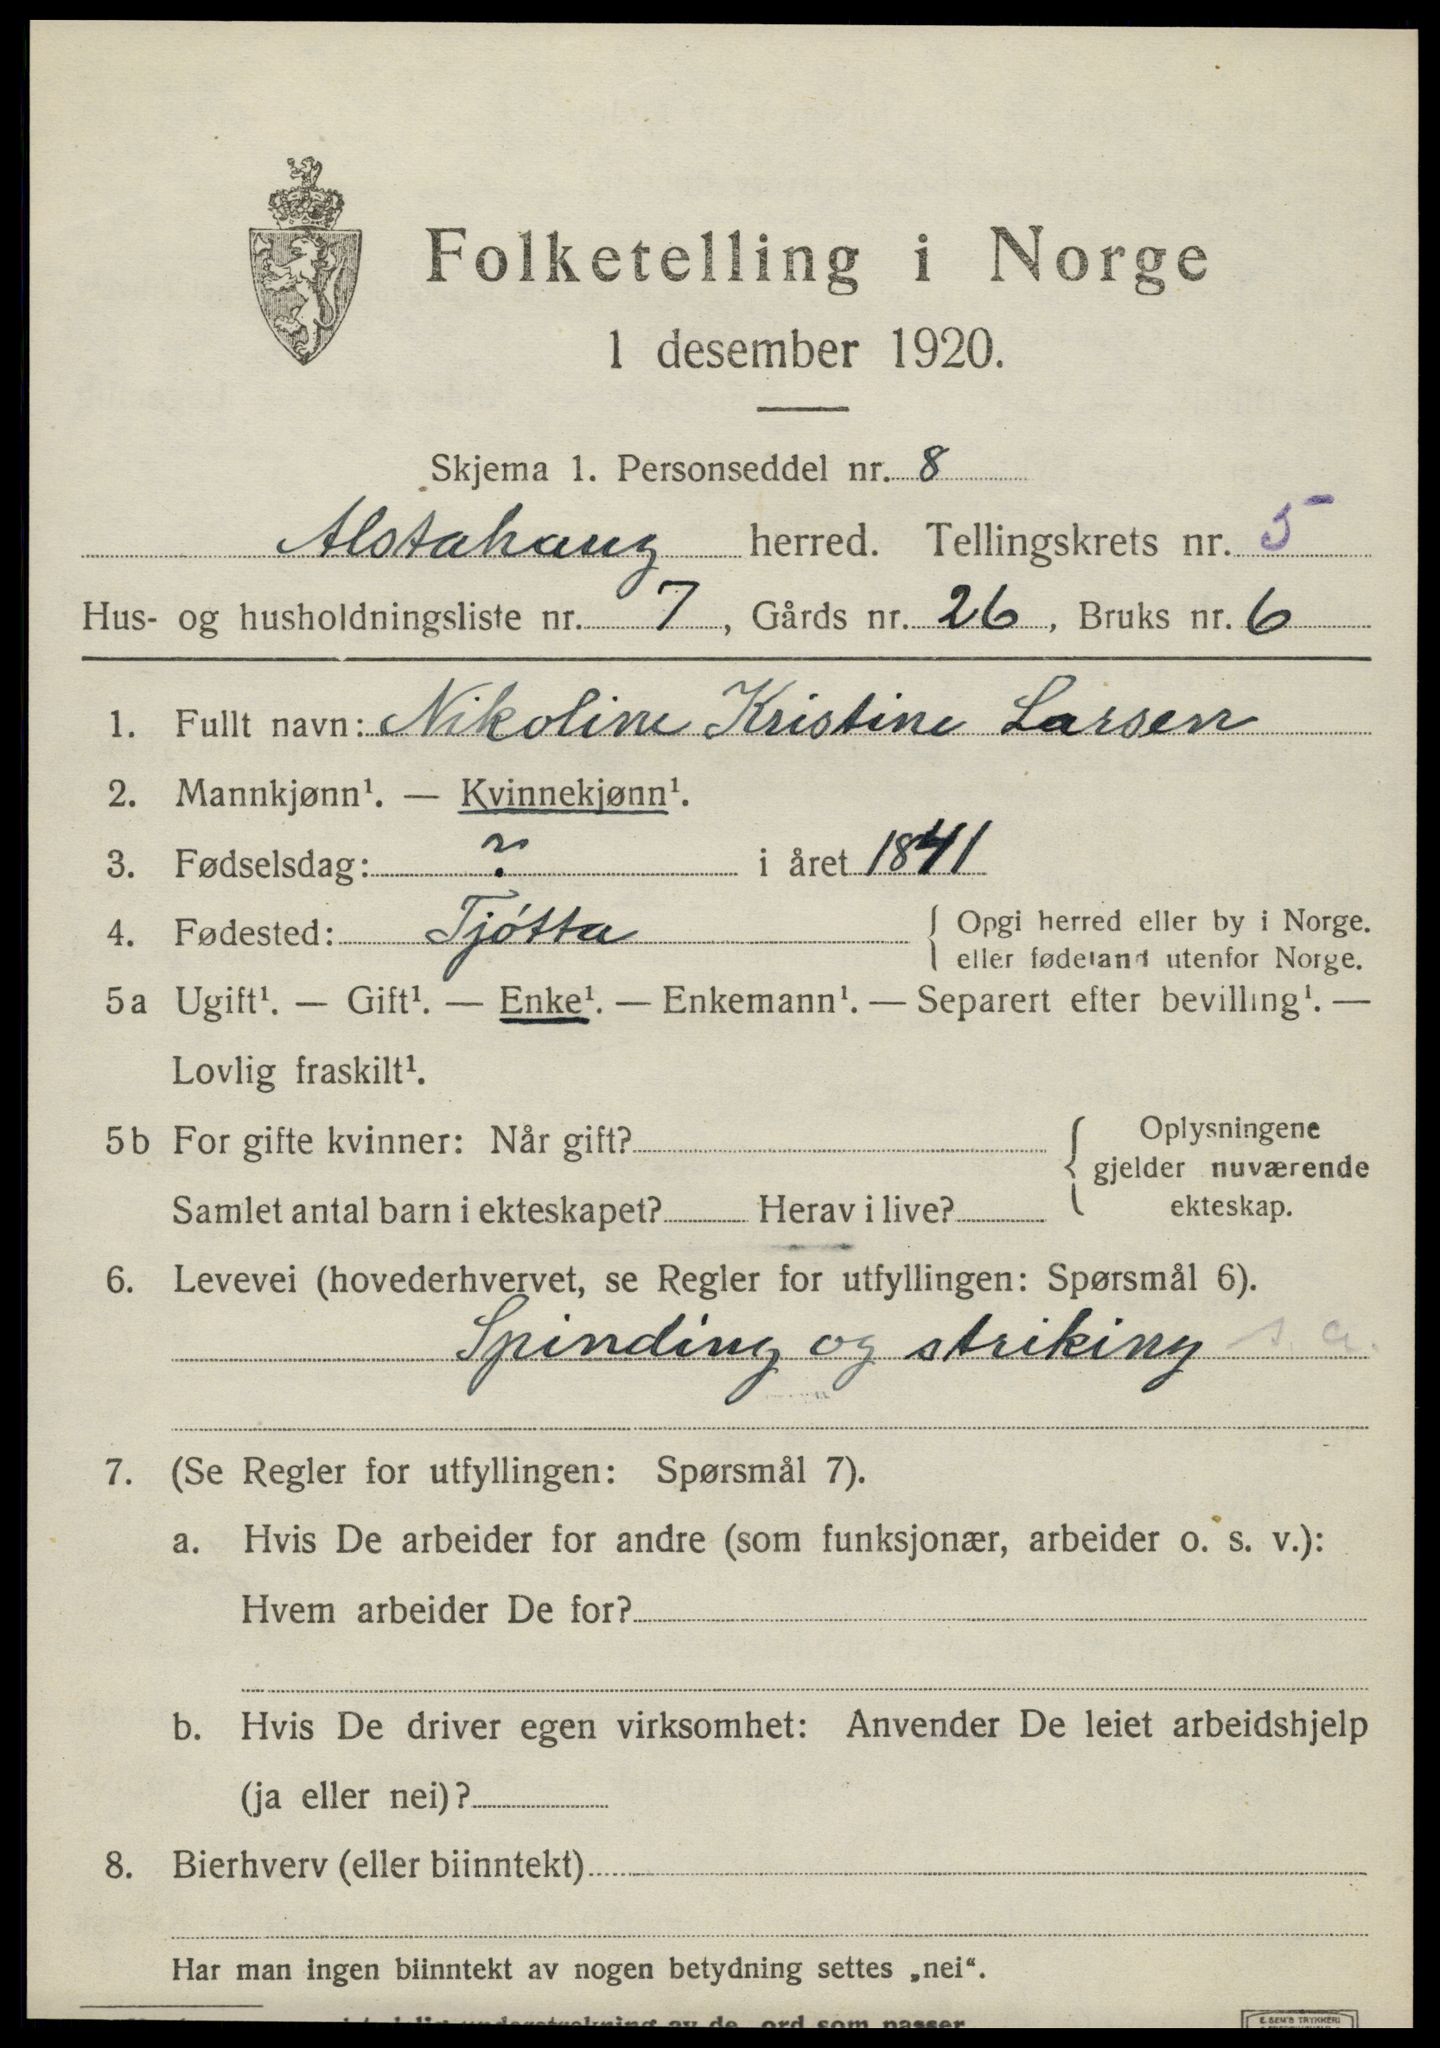 Folketelling i Norge
1 desember 1920.
Skjema 1. Personseddel nr. 8
Alstahaug herred. Tellingskrets nr. 5
Hus- og husholdningsliste nr. 7, Gårds nr. 26, Bruks nr. 6
1. Fullt navn: Nikoline Kristine Larsen
2. Mannkjønn¹. — Kvinnekjønn¹.
3. Fødselsdag: ? i året 1841
4. Fødested: Tjótta { Opgi herred eller by i Norge.
eller fødeland utenfor Norge.
5a Ugift¹. — Gift¹. — Enke¹. — Enkemann¹. — Separert efter bevilling¹. —
Lovlig fraskilt¹.
5b For gifte kvinner: Når gift? { Oplysningene
gjelder nuværende
Samlet antal barn i ekteskapet? Herav i live? ekteskap.
6. Levevei (hovederhvervet, se Regler for utfyllingen: Spørsmål 6).
Spinding og striking s. a.
7. (Se Regler for utfyllingen: Spørsmål 7).
a. Hvis De arbeider for andre (som funksjonær, arbeider o. s. v.):
Hvem arbeider De for?
b. Hvis De driver egen virksomhet: Anvender De leiet arbeidshjelp
(ja eller nei)?
8. Bierhverv (eller biinntekt)
Har man ingen biinntekt av nogen betydning settes „nei“.
understrekning av de ord som passer
E. SEM'S TRYKKERI